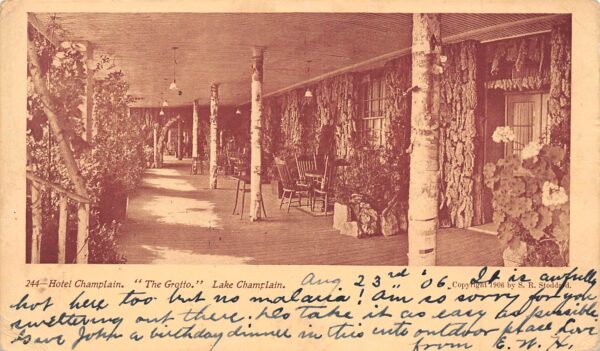 244—Hotel Champlain. "The Grotto." Lake Champlain. Copyright 1906 by S. R. Stoddard.
Aug 23rd '06 It is awfully
hot here too but no malaria! Am so sorry for you
sweltering out there. Do take it as easy as possible
Gave John a birthday dinner in this outdoor place Love
from E. W. H.